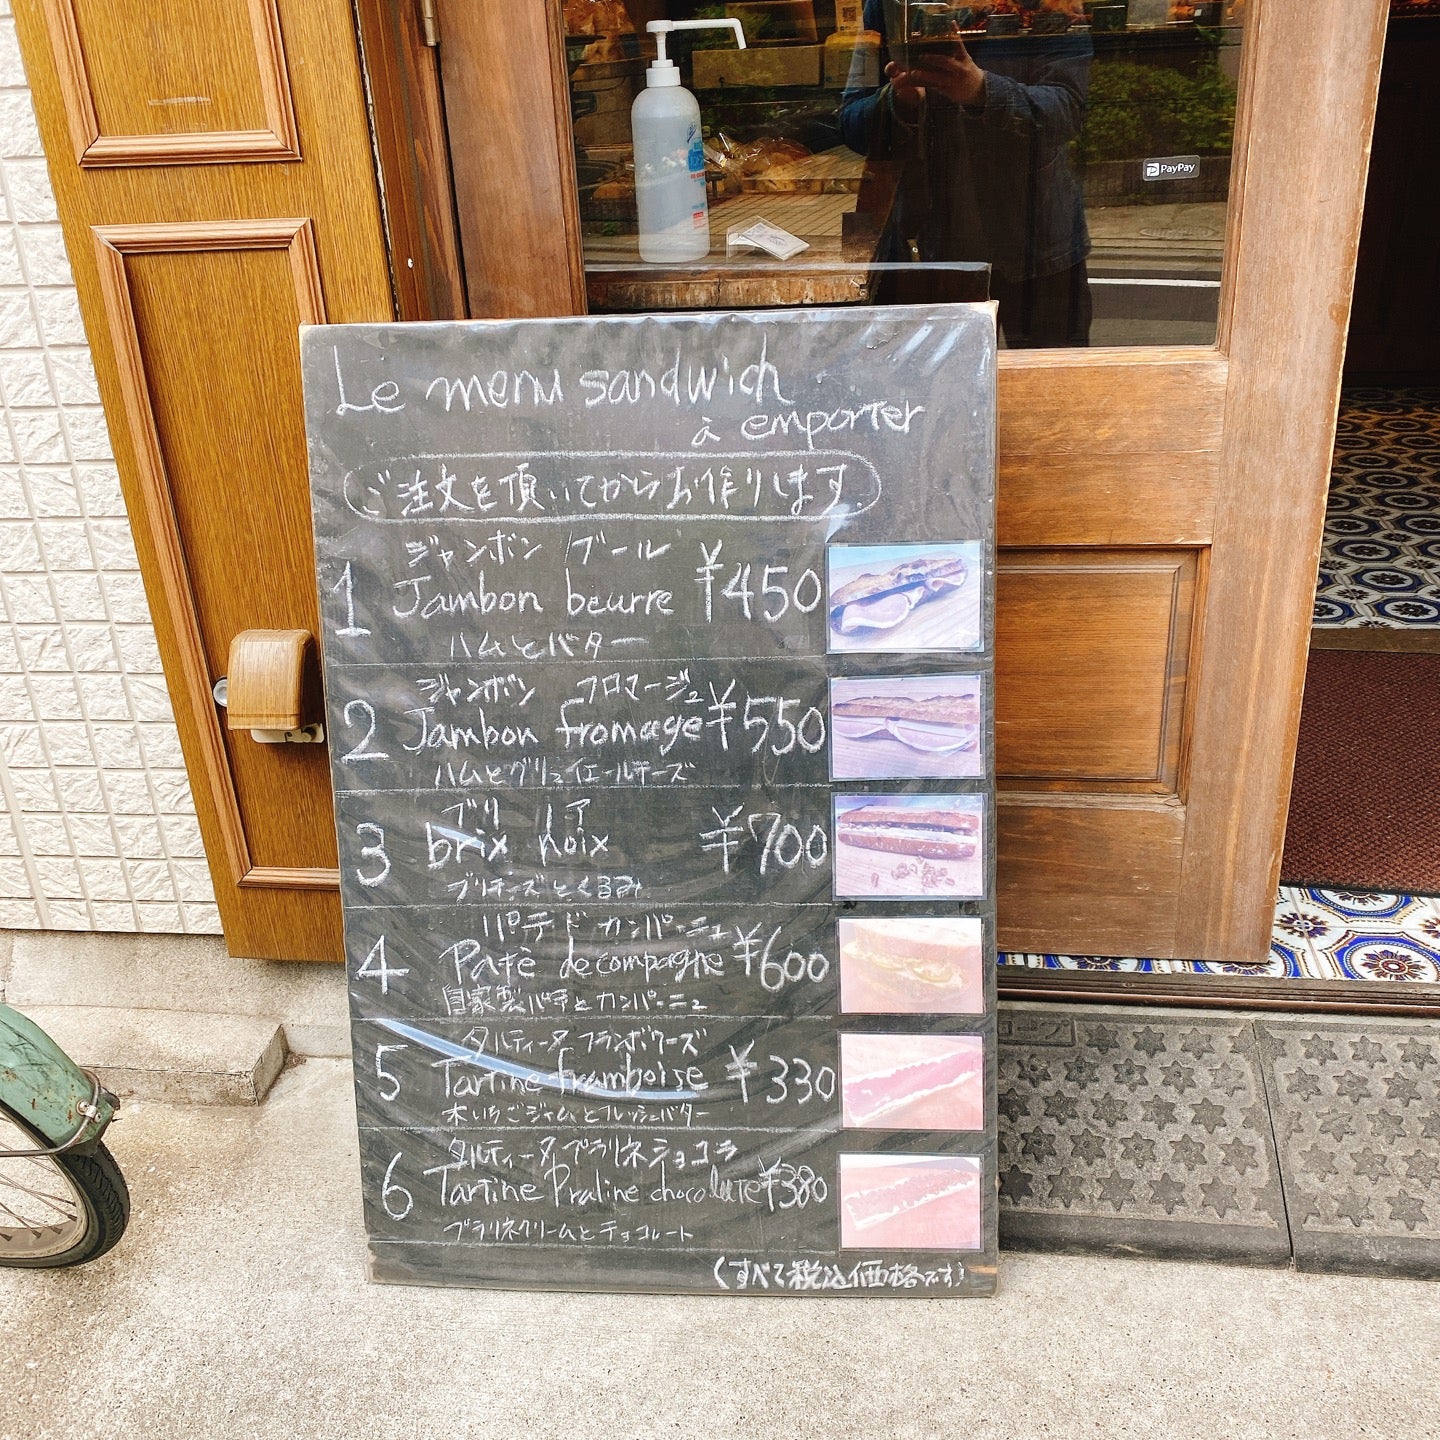 PayPay
Le menu sandwich
à emporter
ご注文を頂いてからお作りします
ジャンボン ブール
1 Jambon beurre ¥450
ハムとバター
ジャンボン フロマージュ
2 Jambon fromage ¥550
ハムとグリュイエールチーズ
ブリ ノア
3 brix noix ¥700
ブリチーズとくるみ
パテ ド カンパーニュ
4 Patè de compagne ¥600
自家製パテとカンパーニュ
タルティーヌ フランボワーズ
5 Tartine framboise ¥330
木いちごジャムとフレッシュバター
タルティーヌ プラリネ ショコラ
6 Tartine Praline chocolate ¥380
プラリネクリームとチョコレート
(すべて税込価格です)